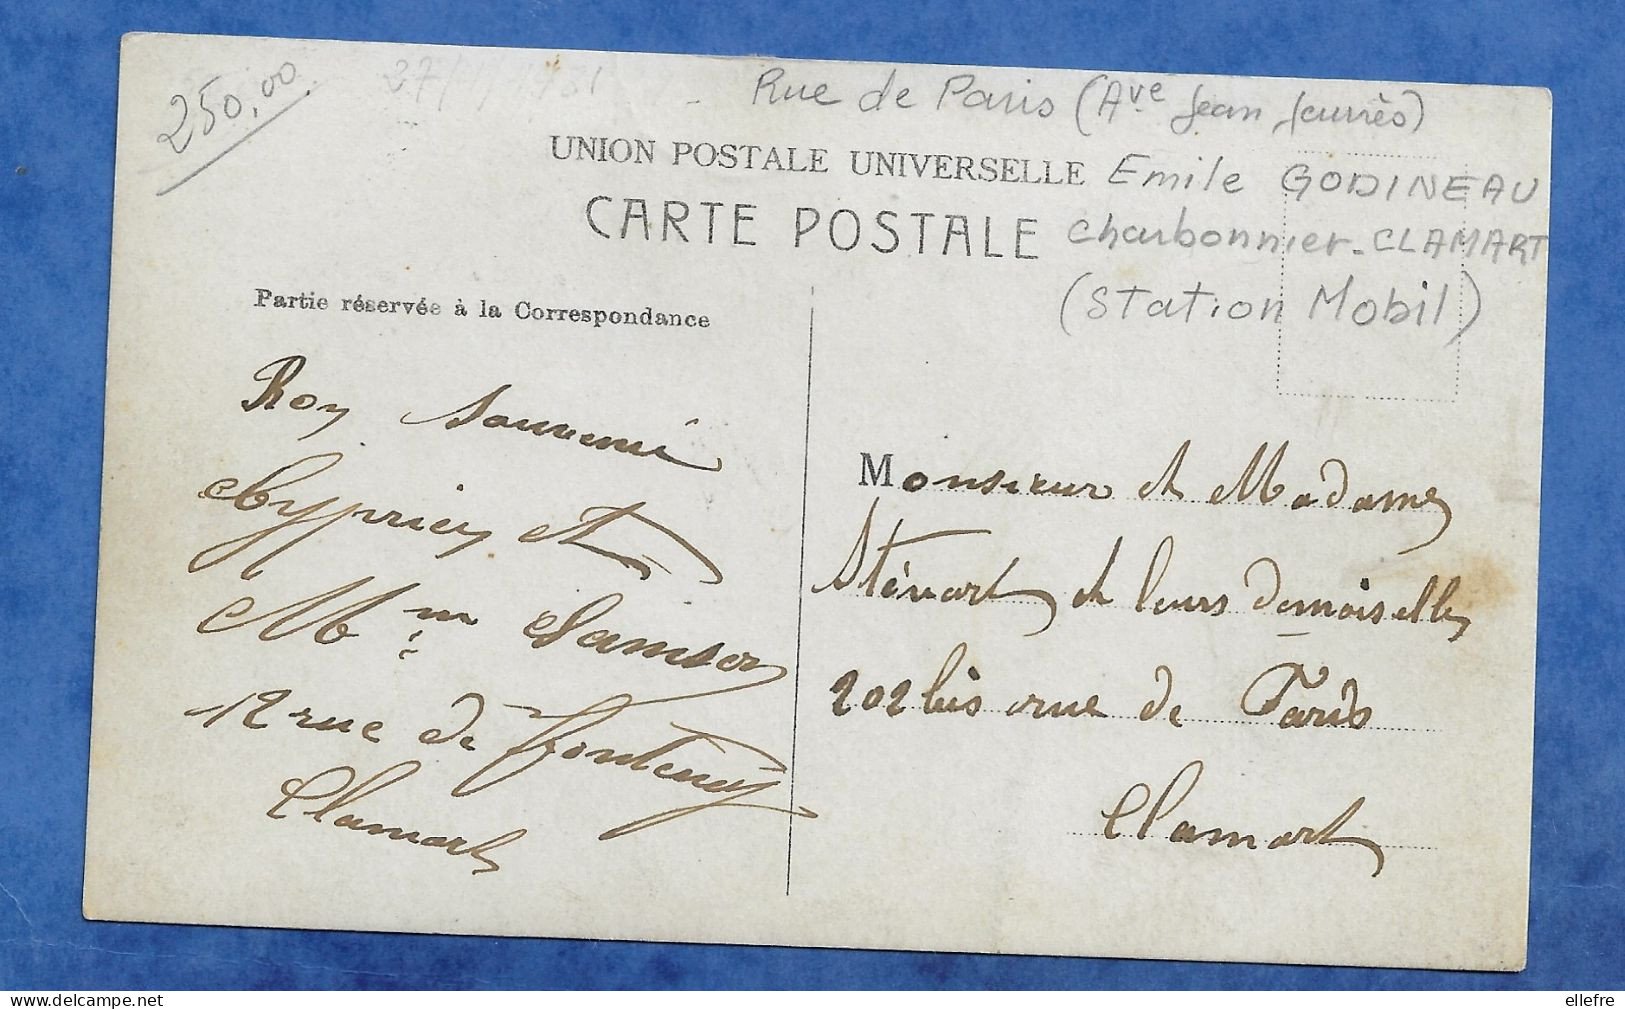 250,00
Rue de Paris (Ave Jean Jaurès)
UNION POSTALE UNIVERSELLE
Emile GODINEAU
CARTE POSTALE
Charbonnier-CLAMART
(Station Mobil)
Partie réservée à la Correspondance
souvenir
Cyprien et
Mme Samson
12 rue de Fontenay
Clamart
Monsieur et Madame
Sténart et leurs demoiselles
202 bis rue de Paris
Clamart
ellefre